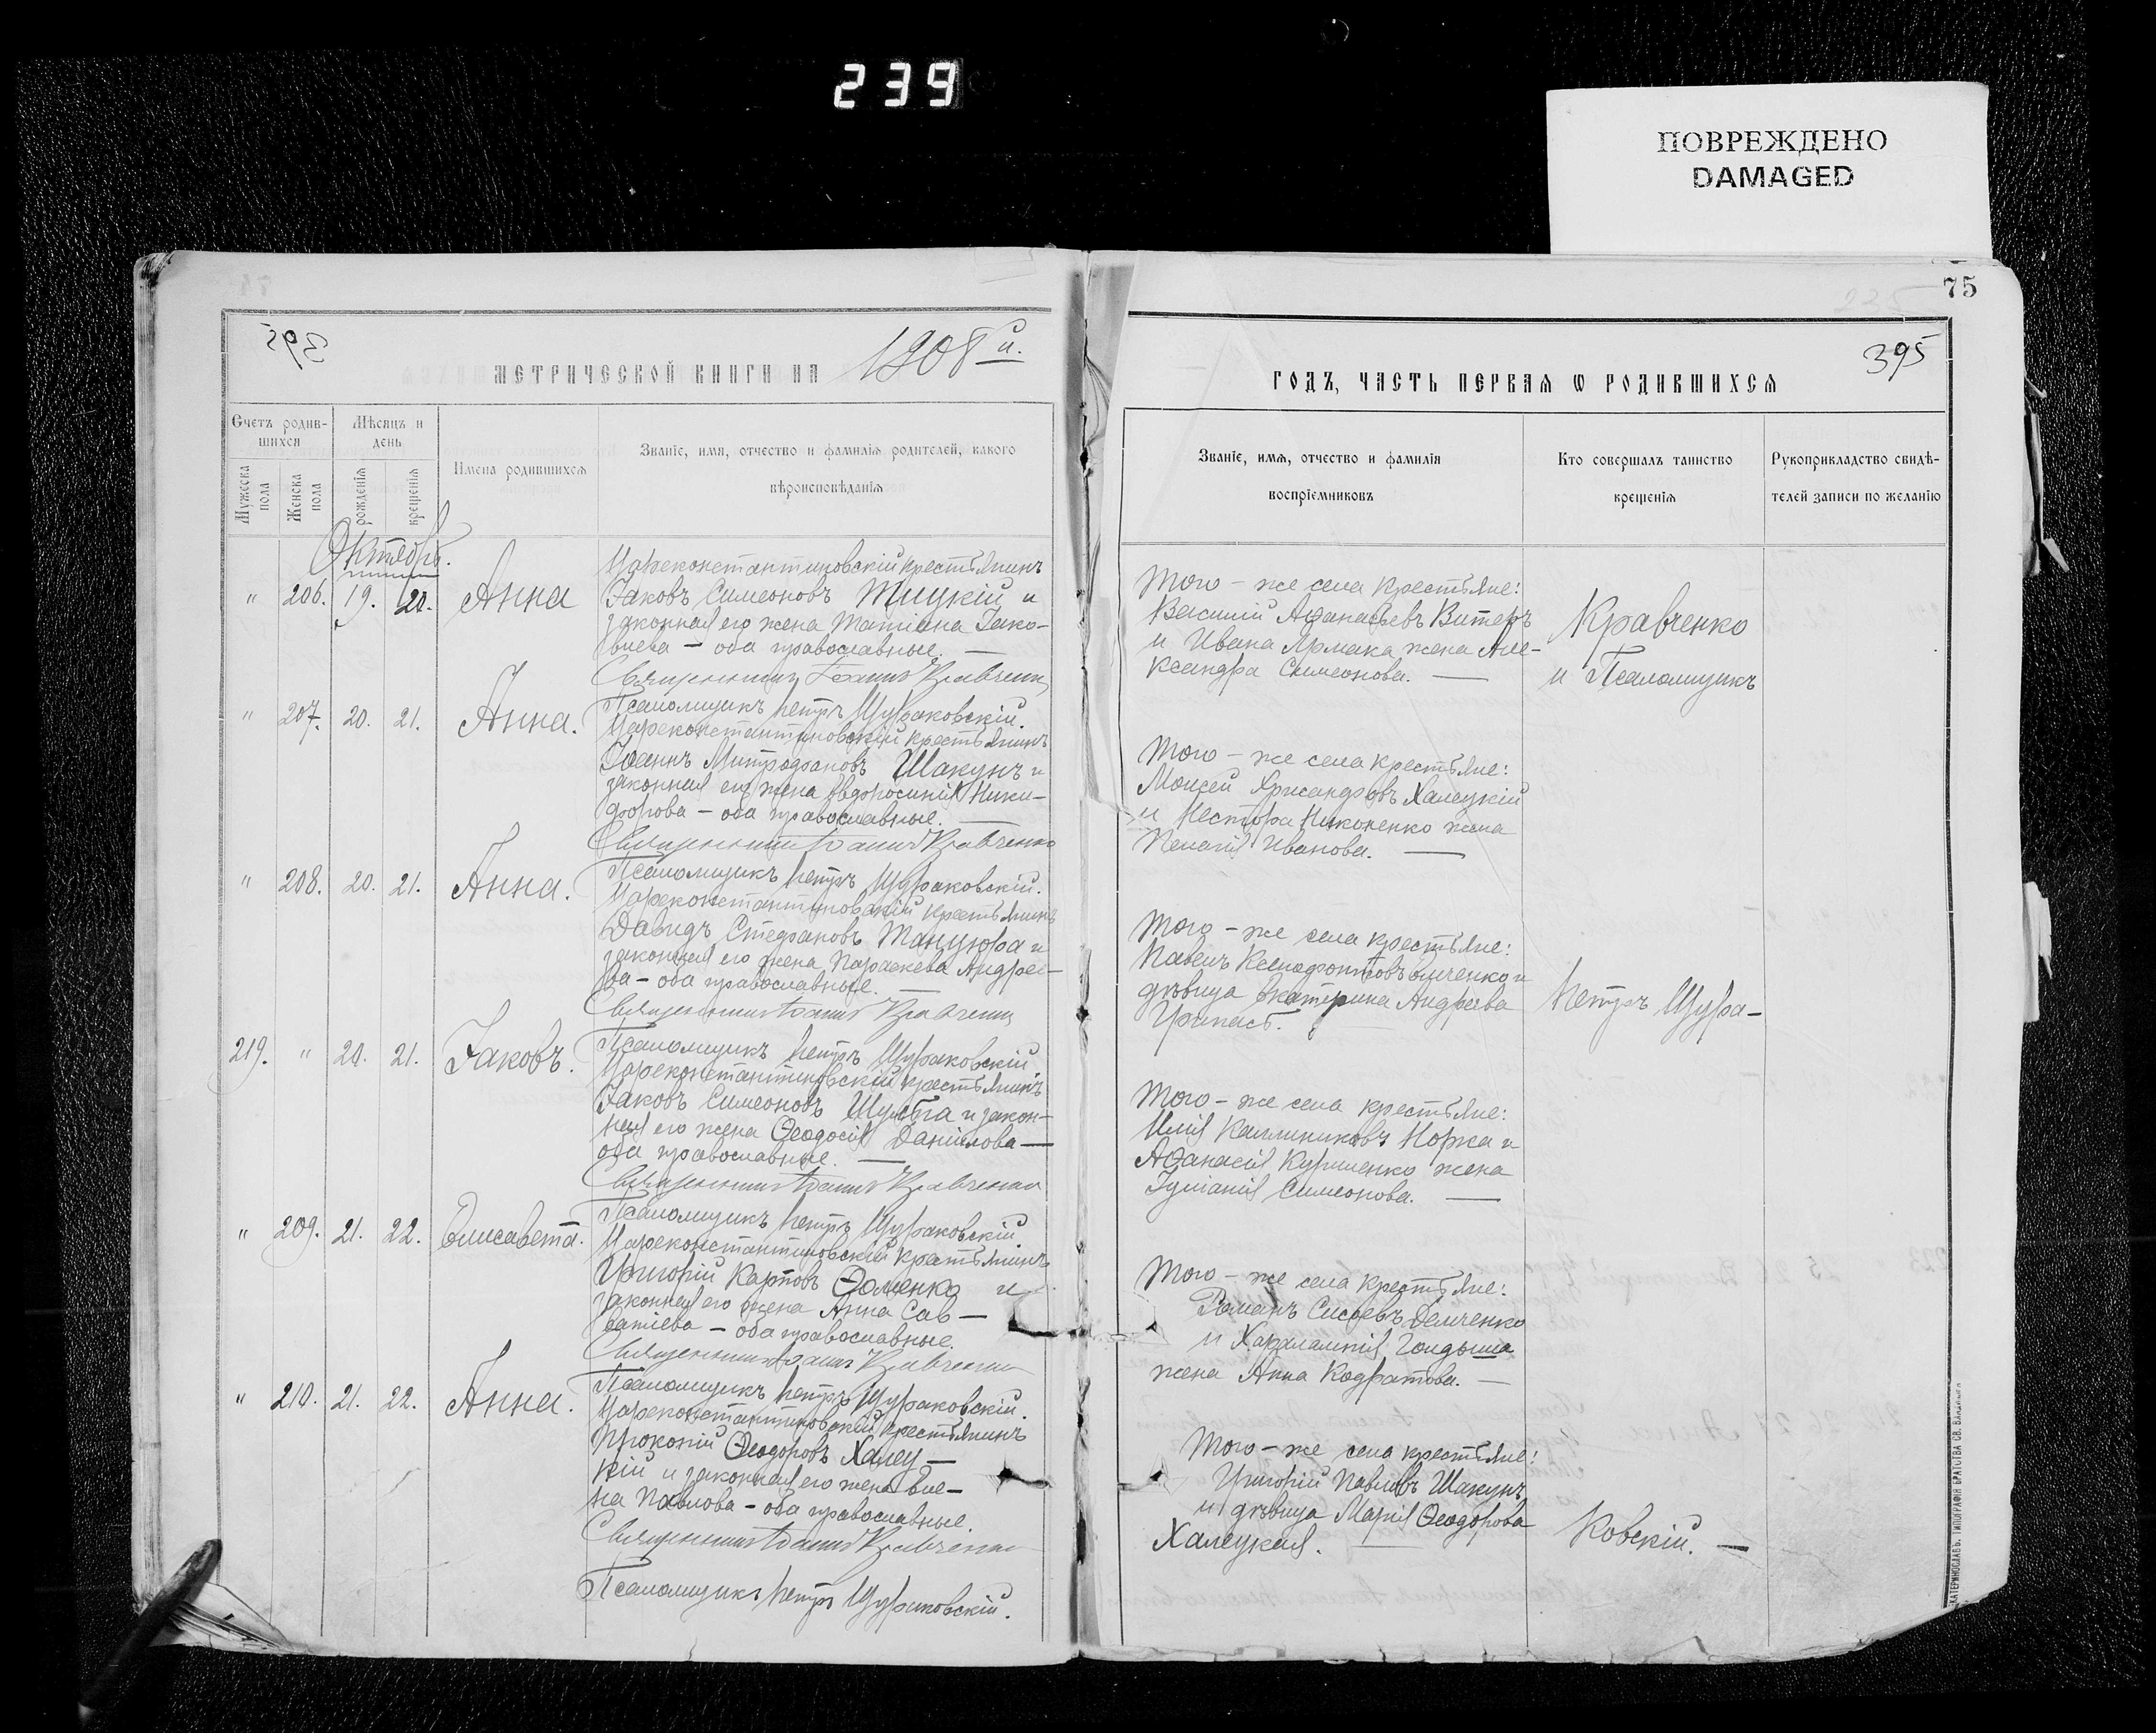 239
ПОВРЕЖДЕНО
DAMAGED
75
395
МЕТРИЧЕСКОЙ КНИГИ НА 1908й.
Счетъ родив-
шихся
Мѣсяцъ и
день
Имена родившихся
Званіе, имя, отчество и фамилія родителей, какого
вѣроисповѣданія
Мужеска
пола
Женска
пола
рожденія
крещенія
Октябрь.
" 206. 19. 20. Анна
Цареконстантиновскій крестьянинъ
Іаковъ Симеоновъ Тицкій и
законная его жена Татіана Іако-
влева – оба православные. —
Священникъ Іоаннъ Кравченко
Псаломщикъ Петръ Щураковскій.
" 207. 20. 21. Анна.
Цареконстантиновскій крестьянинъ
Іоаннъ Митрофановъ Шакунъ и
законная его жена Евфросинія Ники-
форова – оба православные. —
Священникъ Іоаннъ Кравченко
Псаломщикъ Петръ Щураковскій.
" 208. 20. 21. Анна.
Цареконстантиновскій крестьянинъ
Давидъ Стефановъ Танцюра и
законная его жена Параскева Андрее-
ва – оба православные. —
Священникъ Іоаннъ Кравченко
Псаломщикъ Петръ Щураковскій.
219. " 20. 21. Іаковъ.
Цареконстантиновскій крестьянинъ
Іаковъ Симеоновъ Шульга и закон-
ная его жена Ѳеодосія Даніилова —
оба православные. —
Священникъ Іоаннъ Кравченко
Псаломщикъ Петръ Щураковскій.
" 209. 21. 22. Елисавета.
Цареконстантиновскій крестьянинъ
Григорій Карповъ Ѳоменко и
законная его жена Анна Сав-
ватіева – оба православные.
Священникъ Іоаннъ Кравченко
Псаломщикъ Петръ Щураковскій.
" 210. 21. 22. Анна.
Цареконстантиновскій крестьянинъ
Прокопій Ѳеодоровъ Халец-
кій и законная его жена Еле-
на Павлова – оба православные.
Священникъ Іоаннъ Кравченко
Псаломщикъ Петръ Щураковскій.
395
ГОДЪ, ЧАСТЬ ПЕРВАЯ Ѡ РОДИВШИХСЯ
Званіе, имя, отчество и фамилія
воспріемниковъ
Кто совершалъ таинство
крещенія
Рукоприкладство свидѣ-
телей записи по желанію
Того – же села крестьяне:
Василій Аѳанасьевъ Витеръ
и Ивана Ярмака жена Але-
ксандра Симеонова. —
Кравченко
и Псаломщикъ
Того – же села крестьяне:
Моисей Хрисанфовъ Халецкій
и Нестора Никоненко жена
Пелагія Иванова. —
Того – же села крестьяне:
Павелъ Ксенофонтовъ и
дѣвица Екатерина Андреева
Петръ Щура-
Того – же села крестьяне:
Илія Каллиниковъ Норка и
Аѳанасія жена
Іуліанія Симеонова. —
Того – же села крестьяне:
Романъ Сисоевъ Демченко
и Харалампія
жена Анна Кодратова. —
Того – же села крестьяне:
Григорій Павловъ Шакунъ
и дѣвица Марія Ѳеодорова
Халецкая. —
ковскій. —
ЕКАТЕРИНОСЛАВЪ. ТИПОГРАФІЯ БРАТСТВА СВ. ВЛАДИМІРА